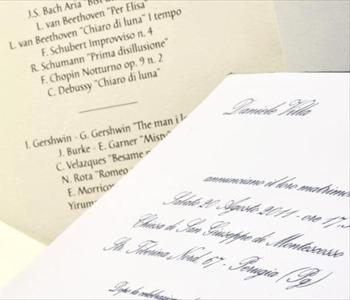 J.S. Bach Aria
L. van Beethoven "Per Elisa"
L. van Beethoven "Chiaro di luna" I tempo
F. Schubert Improvviso n. 4
R. Schumann "Prima disillusione"
F. Chopin Notturno op. 9 n. 2
C. Debussy "Chiaro di luna"
I. Gershwin - G. Gershwin "The man i
J. Burke - E. Garner
C. Velazques "Besame
N. Rota "Romeo
E. Morricon
Yirum
Daniele Villa
annunciano il loro matrimon
Sabato 20 Agosto 2011 - ore 17.
Chiesa di San Giuseppe di Montescosso
Str. Tiberina Nord 67 - Perugia (Pg)
Dopo la